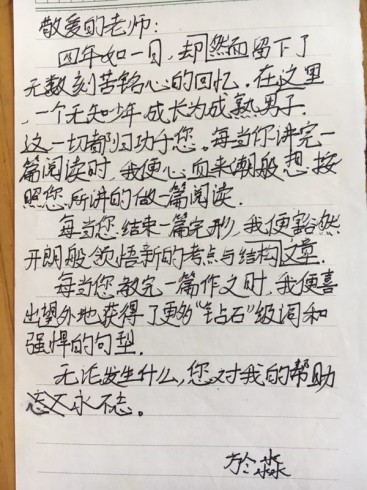 敬爱的老师：
四年如一日，却然而留下了
无数刻苦铭心的回忆．在这里
，一个无知少年，成长为成熟男子．
这一切都归功于您。每当你讲完一
篇阅读时，我便心血来潮般想按
照您所讲的做一篇阅读．
每当您结束一篇完形，我便豁然
开朗般领悟新的考点与结构文章．
每当您教完一篇作文时，我便喜
出望外地获得了更多“钻石”级词和
强悍的句型．
无论发生什么，您对我的帮助
永不忘。